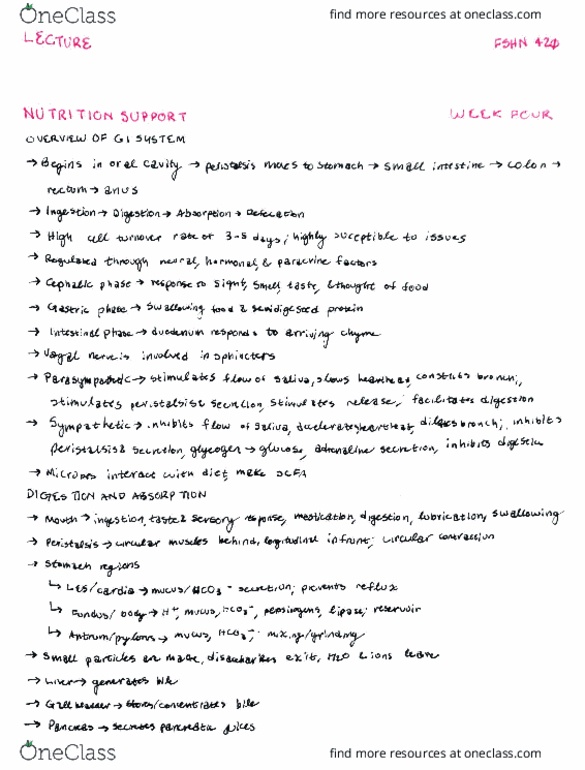 OneClass
find more resources at oneclass.com
LECTURE
FSHN 420
NUTRITION SUPPORT
WEEK FOUR
OVERVIEW OF GI SYSTEM
→ Begins in oral cavity → peristalsis moves to stomach → small intestine → colon →
rectum → anus
→ Ingestion → Digestion → Absorption → Defecation
→ High cell turnover rate of 3-5 days; highly suceptible to issues
→ Regulated through neural, hormonal, & paracrine factors
→ Cephalic phase → response to sight, smell, taste, & thought of food
→ Gastric phase → swallowing food & semidigested protein
→ Intestinal phase → duodenum responds to arriving chyme
→ Vagal nerve is involved in sphincters
→ Parasympathetic → stimulates flow of saliva, slows heartbeat, constricts bronchi;
stimulates peristalsis & secretion, stimulates release; facilitates digestion
→ Sympathetic → inhibits flow of saliva, accelerates heartbeat, dilates bronchi; inhibits
peristalsis & secretion, glycogen → glucose, adrenaline secretion, inhibits digestion
→ interact with diet, make SCFA
DIGESTION AND ABSORPTION
→ Mouth → ingestion, taste & sensory response, mastication, digestion, lubrication, swallowing
→ Peristalsis → circular muscles behind, longitudinal infront; circular contraction
→ Stomach regions
↳ LES/cardia → mucus/HCO₃⁻ secretion; prevents reflux
↳ Fundus/body → H⁺, mucus, HCO₃⁻, pepsinogens, lipase; reservoir
↳ Antrum/pylorus → mucus, HCO₃⁻; mixing/grinding
→ Small particles are made, disaccharides exit, H2O & ions leave
→ Liver → generates bile
→ Gallbladder → stores/concentrates bile
→ Pancreas → secretes pancreatic juices
OneClass
find more resources at oneclass.com